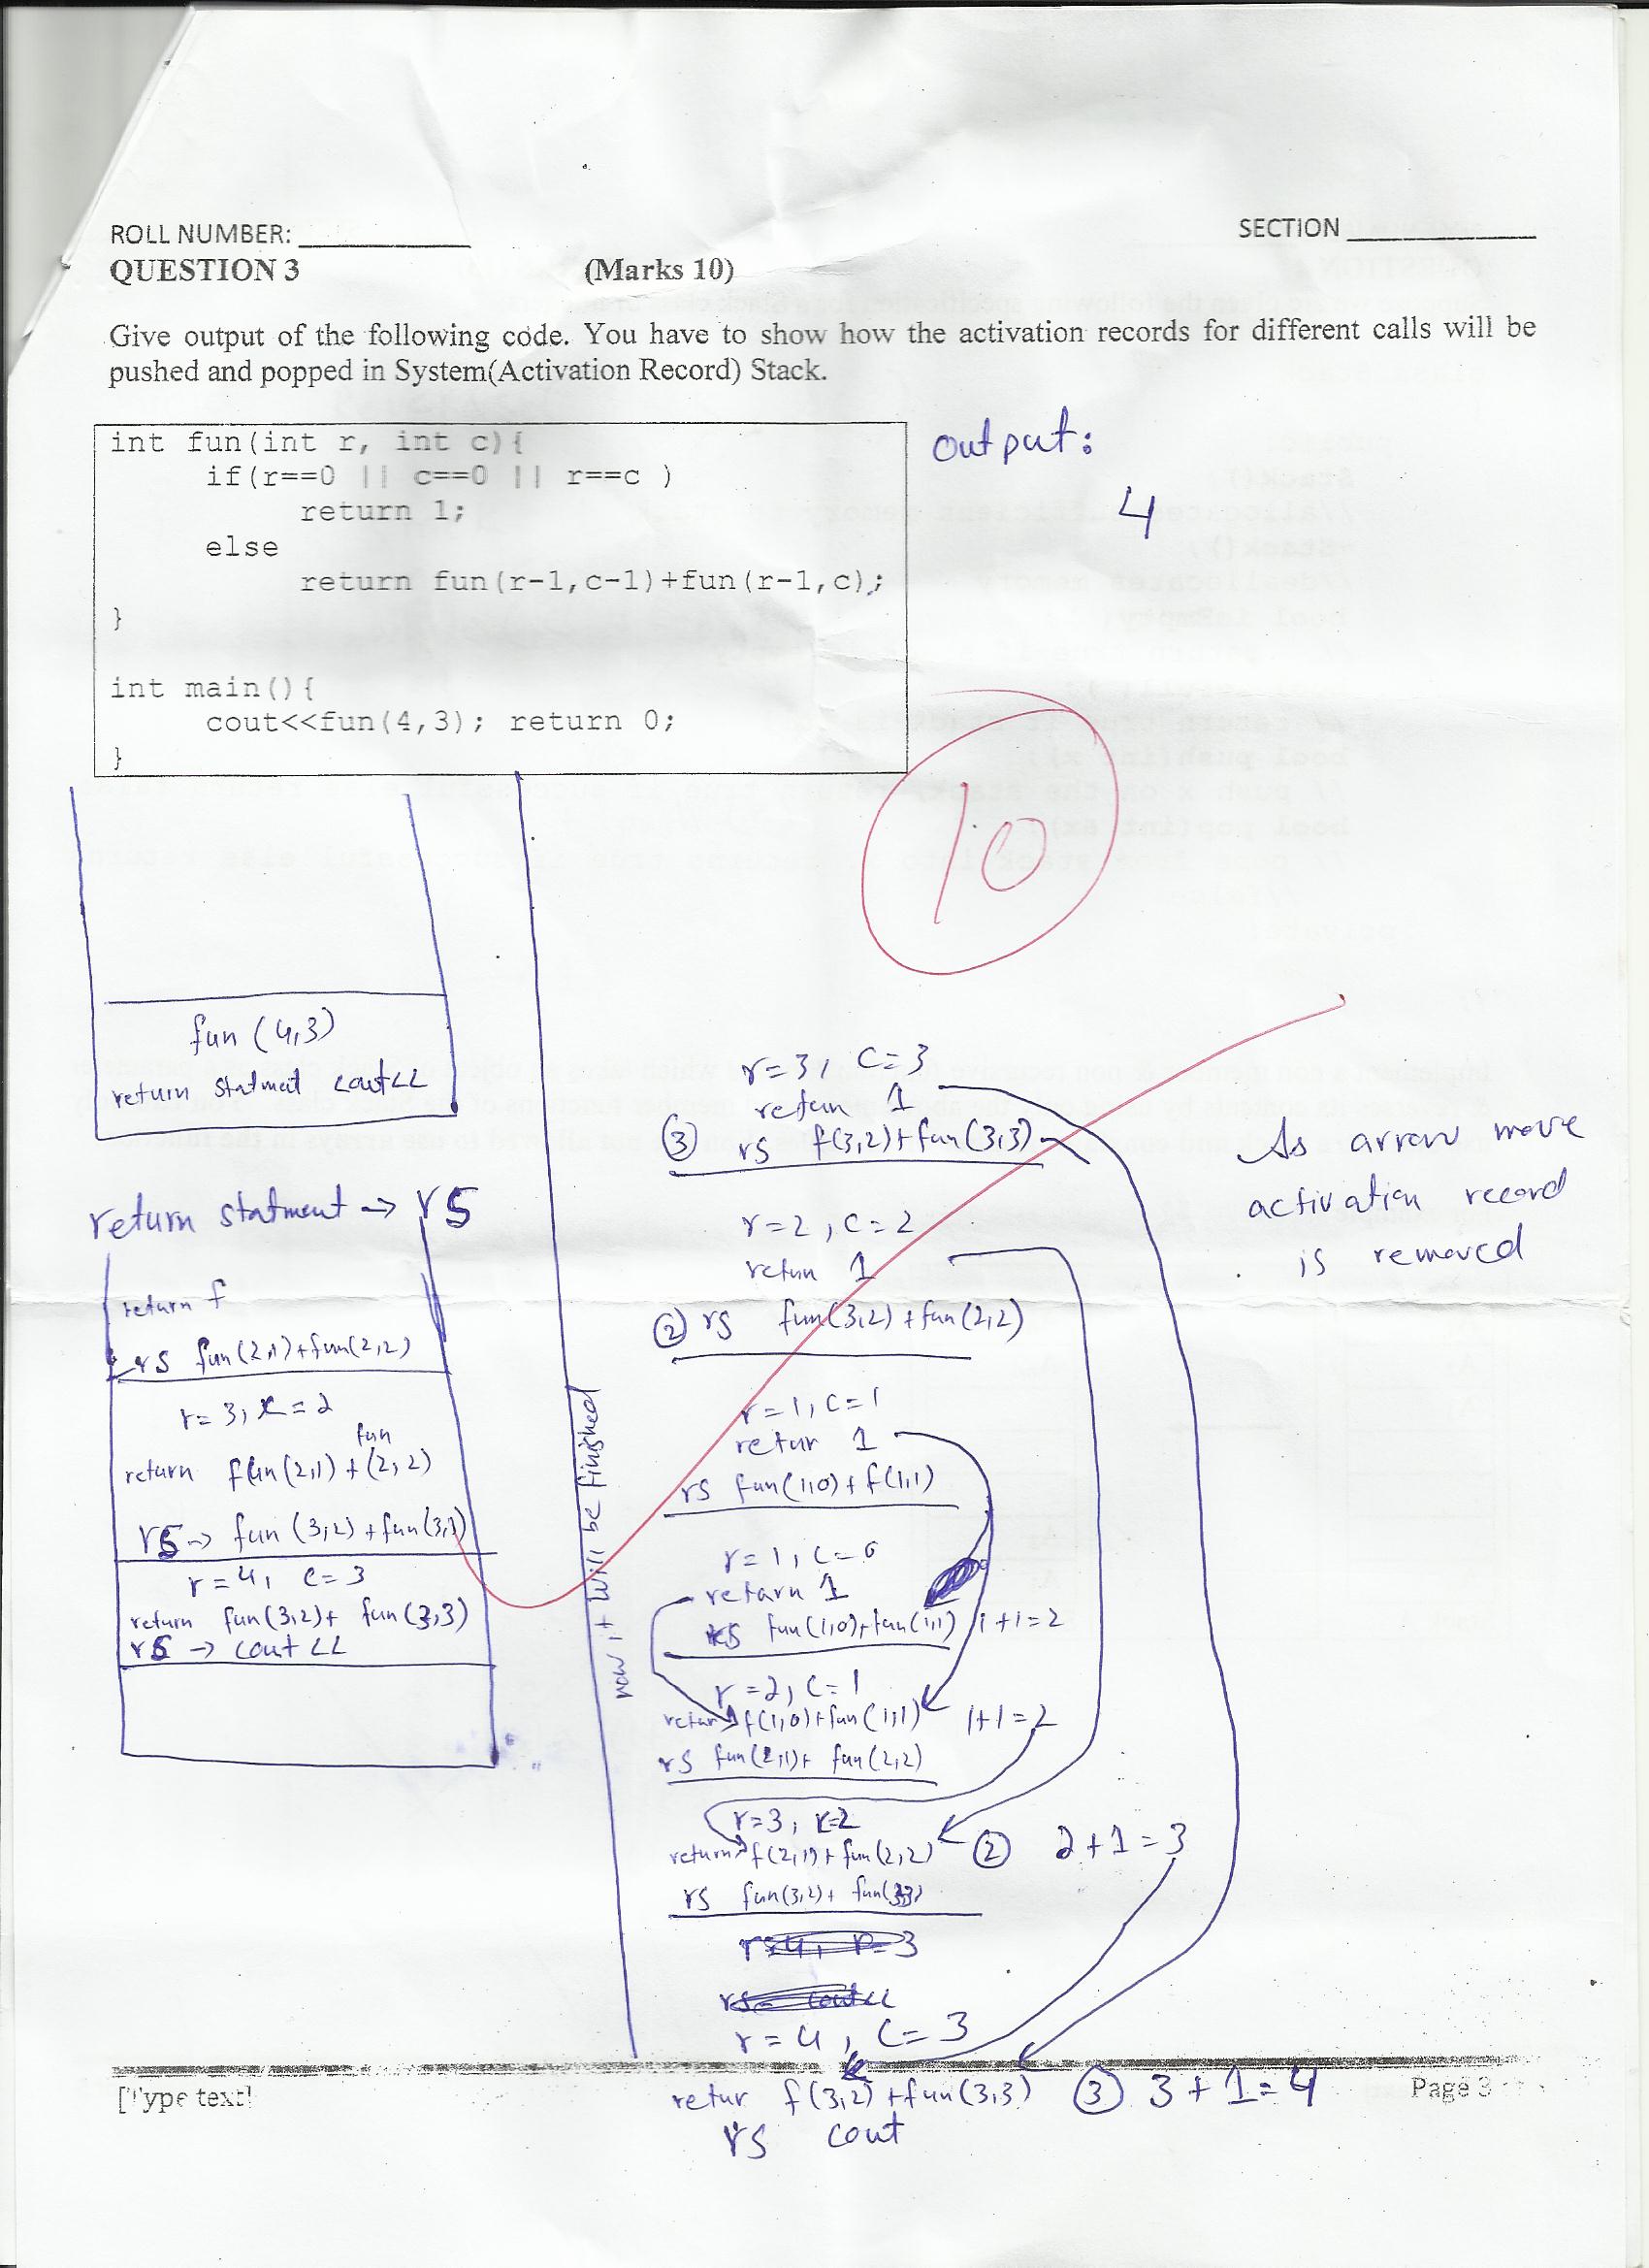 ROLL NUMBER: ___________ SECTION ___________
QUESTION 3 (Marks 10)
Give output of the following code. You have to show how the activation records for different calls will be
pushed and popped in System(Activation Record) Stack.
int fun(int r, int c){
if(r==0 || c==0 || r==c )
return 1;
else
return fun(r-1,c-1)+fun(r-1,c);
}
int main(){
cout<<fun(4,3); return 0;
}
output:
4
10
fun (4,3)
return statmet cout<<
return statment → rs
return f
rs fun(2,1)+fun(2,2)
r=3, c=2
fun
return fun(2,1)+(2,2)
rs→ fun (3,2)+fun(3,3)
r=4, c=3
return fun(3,2)+ fun(3,3)
rs → cout <<
now it will be finished
r=3, c=3
return 1
③ rs f(3,2)+fun(3,3)
r=2, c=2
retun 1
② rs fun(3,2)+fun(2,2)
r=1, c=1
retur 1
rs fun(1,0)+f(1,1)
r=1, c=0
return 1
rs fun(1,0)+fun(1,1) 1+1=2
r=2, c=1
retur f(1,0)+fun(1,1) 1+1=2
rs fun(2,1)+ fun(2,2)
r=3, c=2
return f(2,1)+fun(2,2) ② 2+1=3
rs fun(3,2)+ fun(3,3)
r=4, c=3
retur f(3,2)+fun(3,3) ③ 3+1=4
rs cout
As arrow move
activation record
is removed
[Type text]
Page 3